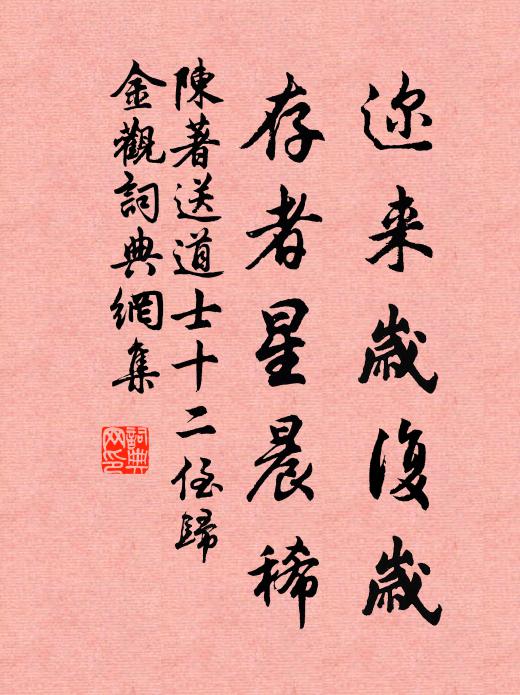 迩来歳復歳
存者星晨稀
陳著送道士十二侄歸
金觀詞典網集
詞典网印